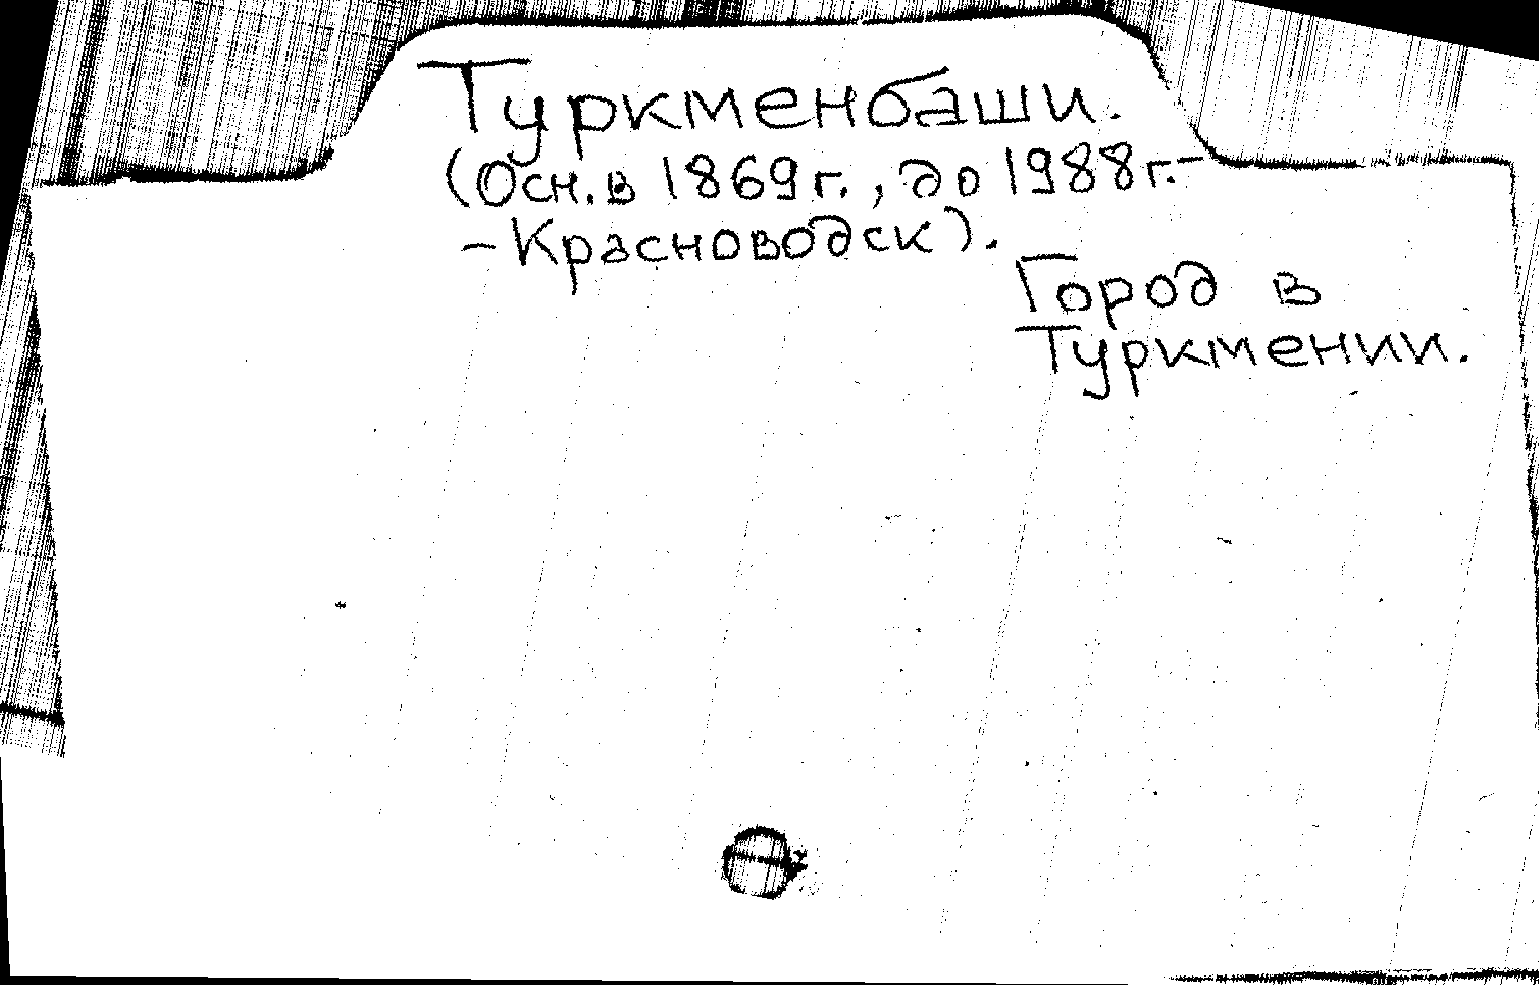 Туркменбаши.
(Осн. в 1869 г., до 1988 г. -
- Красноводск).
Город в
Туркмении.